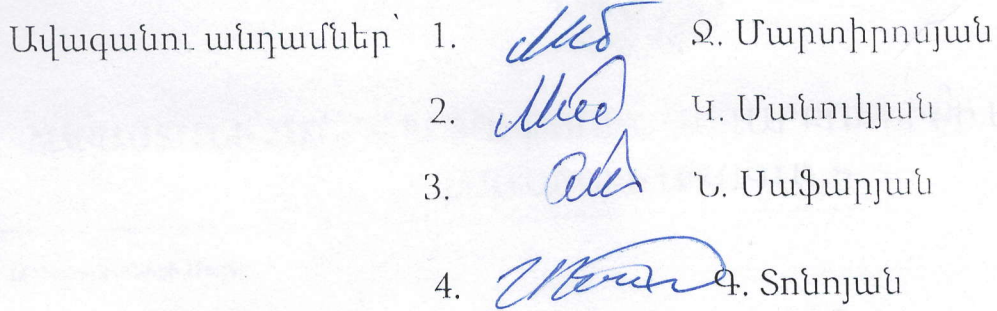 Ավագանու անդամներ՝ 1. Ջ. Մարտիրոսյան
2. Կ. Մանուկյան
3. Ն. Սաֆարյան
4. Գ. Տոնոյան